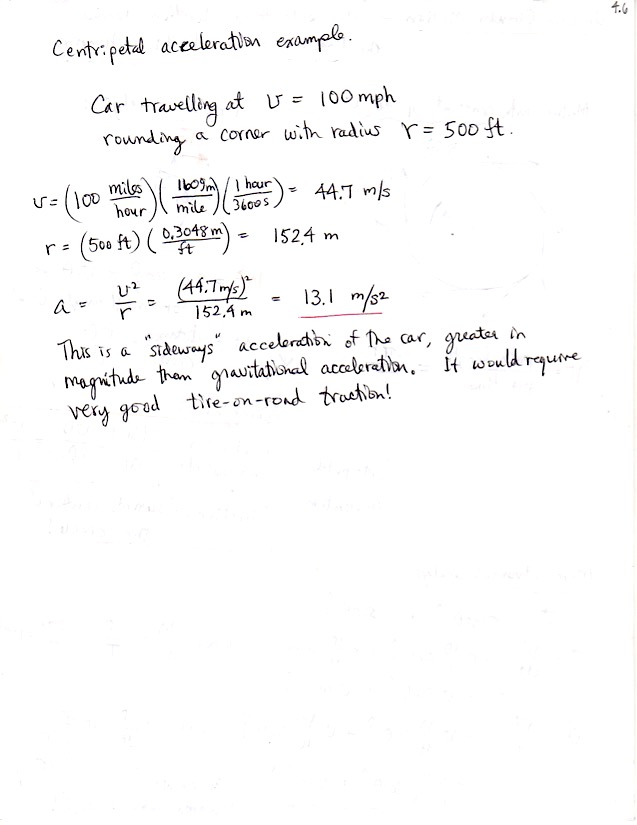 4.6
Centripetal acceleration example.
Car travelling at v = 100 mph
rounding a corner with radius r = 500 ft.
v = (100 miles/hour)(1609m/mile)(1 hour/3600s) = 44.7 m/s
r = (500 ft)(0.3048 m/ft) = 152.4 m
a = v²/r = (44.7 m/s)²/152.4 m = 13.1 m/s²
This is a "sideways" acceleration of the car, greater in
magnitude than gravitational acceleration. It would require
very good tire-on-road traction!